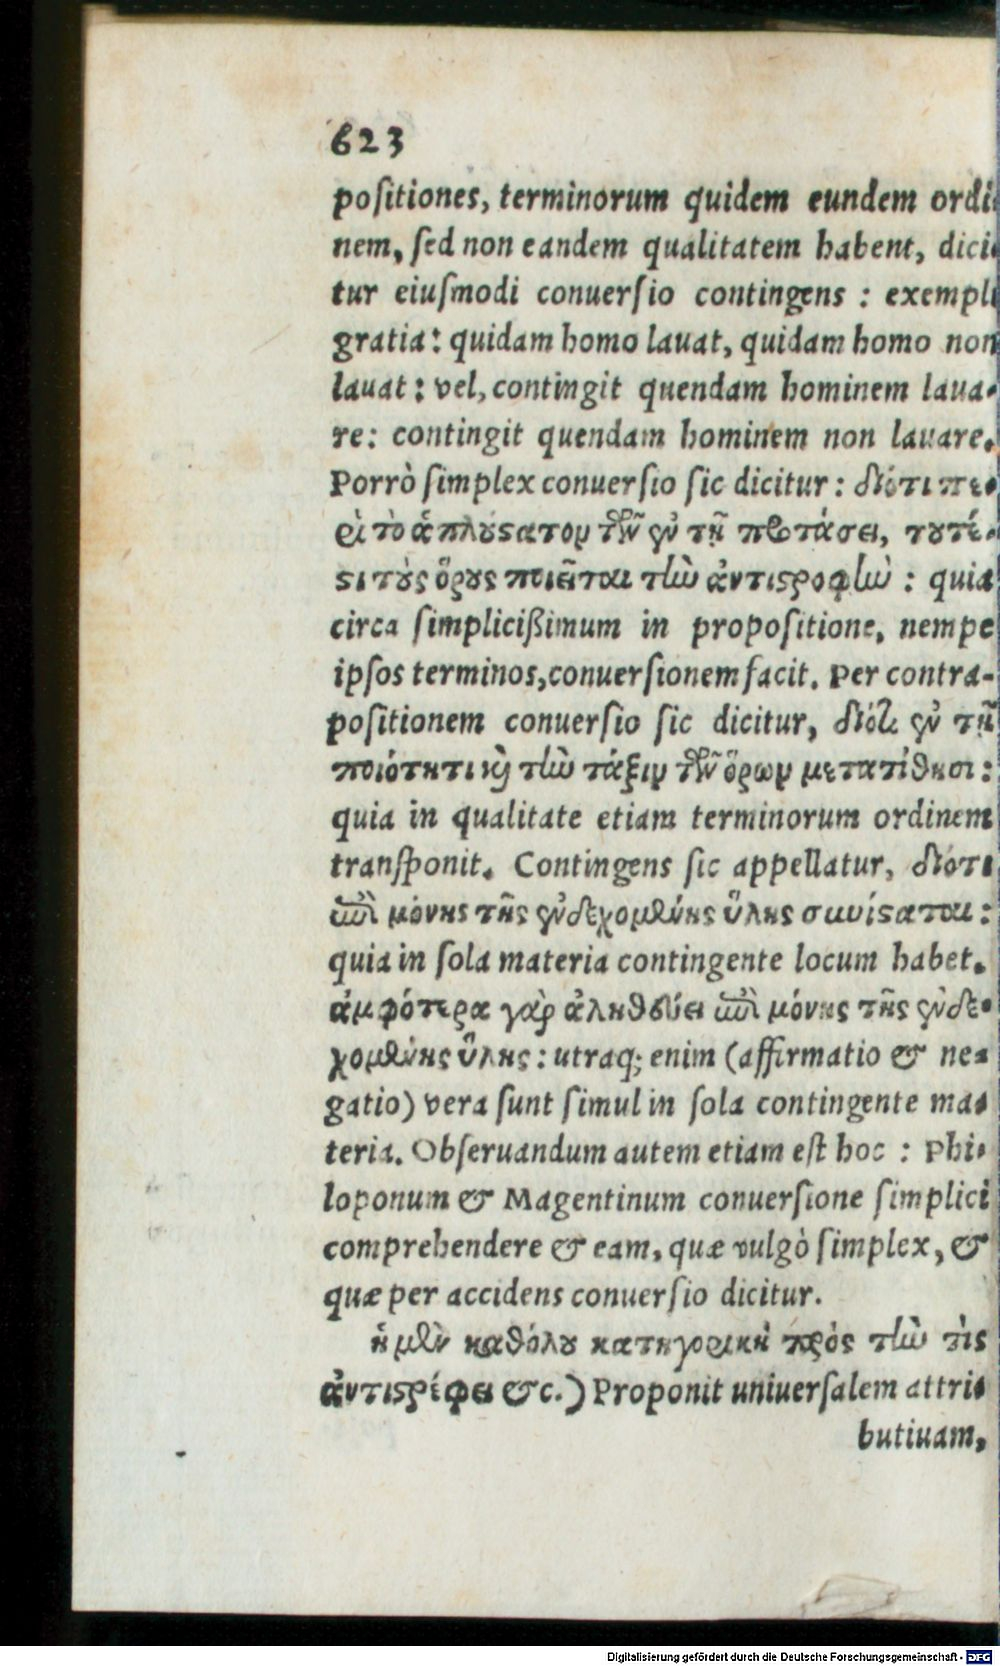 623
positiones, terminorum quidem eundem ordi-
nem, sed non eandem qualitatem habent, dici-
tur eiusmodi conuersio contingens : exempli
gratia: quidam homo lauat, quidam homo non
lauat: vel, contingit quendam hominem laua-
re: contingit quendam hominem non lauare.
Porrò simplex conuersio sic dicitur: διότι πε-
ρὶ τὸ ἁπλούστατον τῶν ἐν τῇ προτάσει, τουτέ-
στι τοὺς ὅρους ποιεῖται τὴν ἀντιστροφὴν : quia
circa simplicißimum in propositione, nempe
ipsos terminos, conuersionem facit. Per contra-
positionem conuersio sic dicitur, διότι ἐν τῇ
ποιότητι καὶ τὴν τάξιν τῶν ὅρων μετατίθησι:
quia in qualitate etiam terminorum ordinem
transponit. Contingens sic appellatur, διότι
ἐπὶ μόνης τῆς ἐνδεχομένης ὕλης συνίσταται:
quia in sola materia contingente locum habet.
ἀμφότερα γὰρ ἀληθεύει ἐπὶ μόνης τῆς ἐνδε-
χομένης ὕλης: utraq; enim (affirmatio & ne-
gatio) vera sunt simul in sola contingente ma-
teria. Obseruandum autem etiam est hoc : Phi-
loponum & Magentinum conuersione simplici
comprehendere & eam, quæ vulgò simplex, &
quæ per accidens conuersio dicitur.
ἡ μὲν καθόλου κατηγορικὴ πρὸς τὴν τὶς
ἀντιστρέφει &c.) Proponit uniuersalem attri-
butiuam,
Digitalisierung gefördert durch die Deutsche Forschungsgemeinschaft - DFG